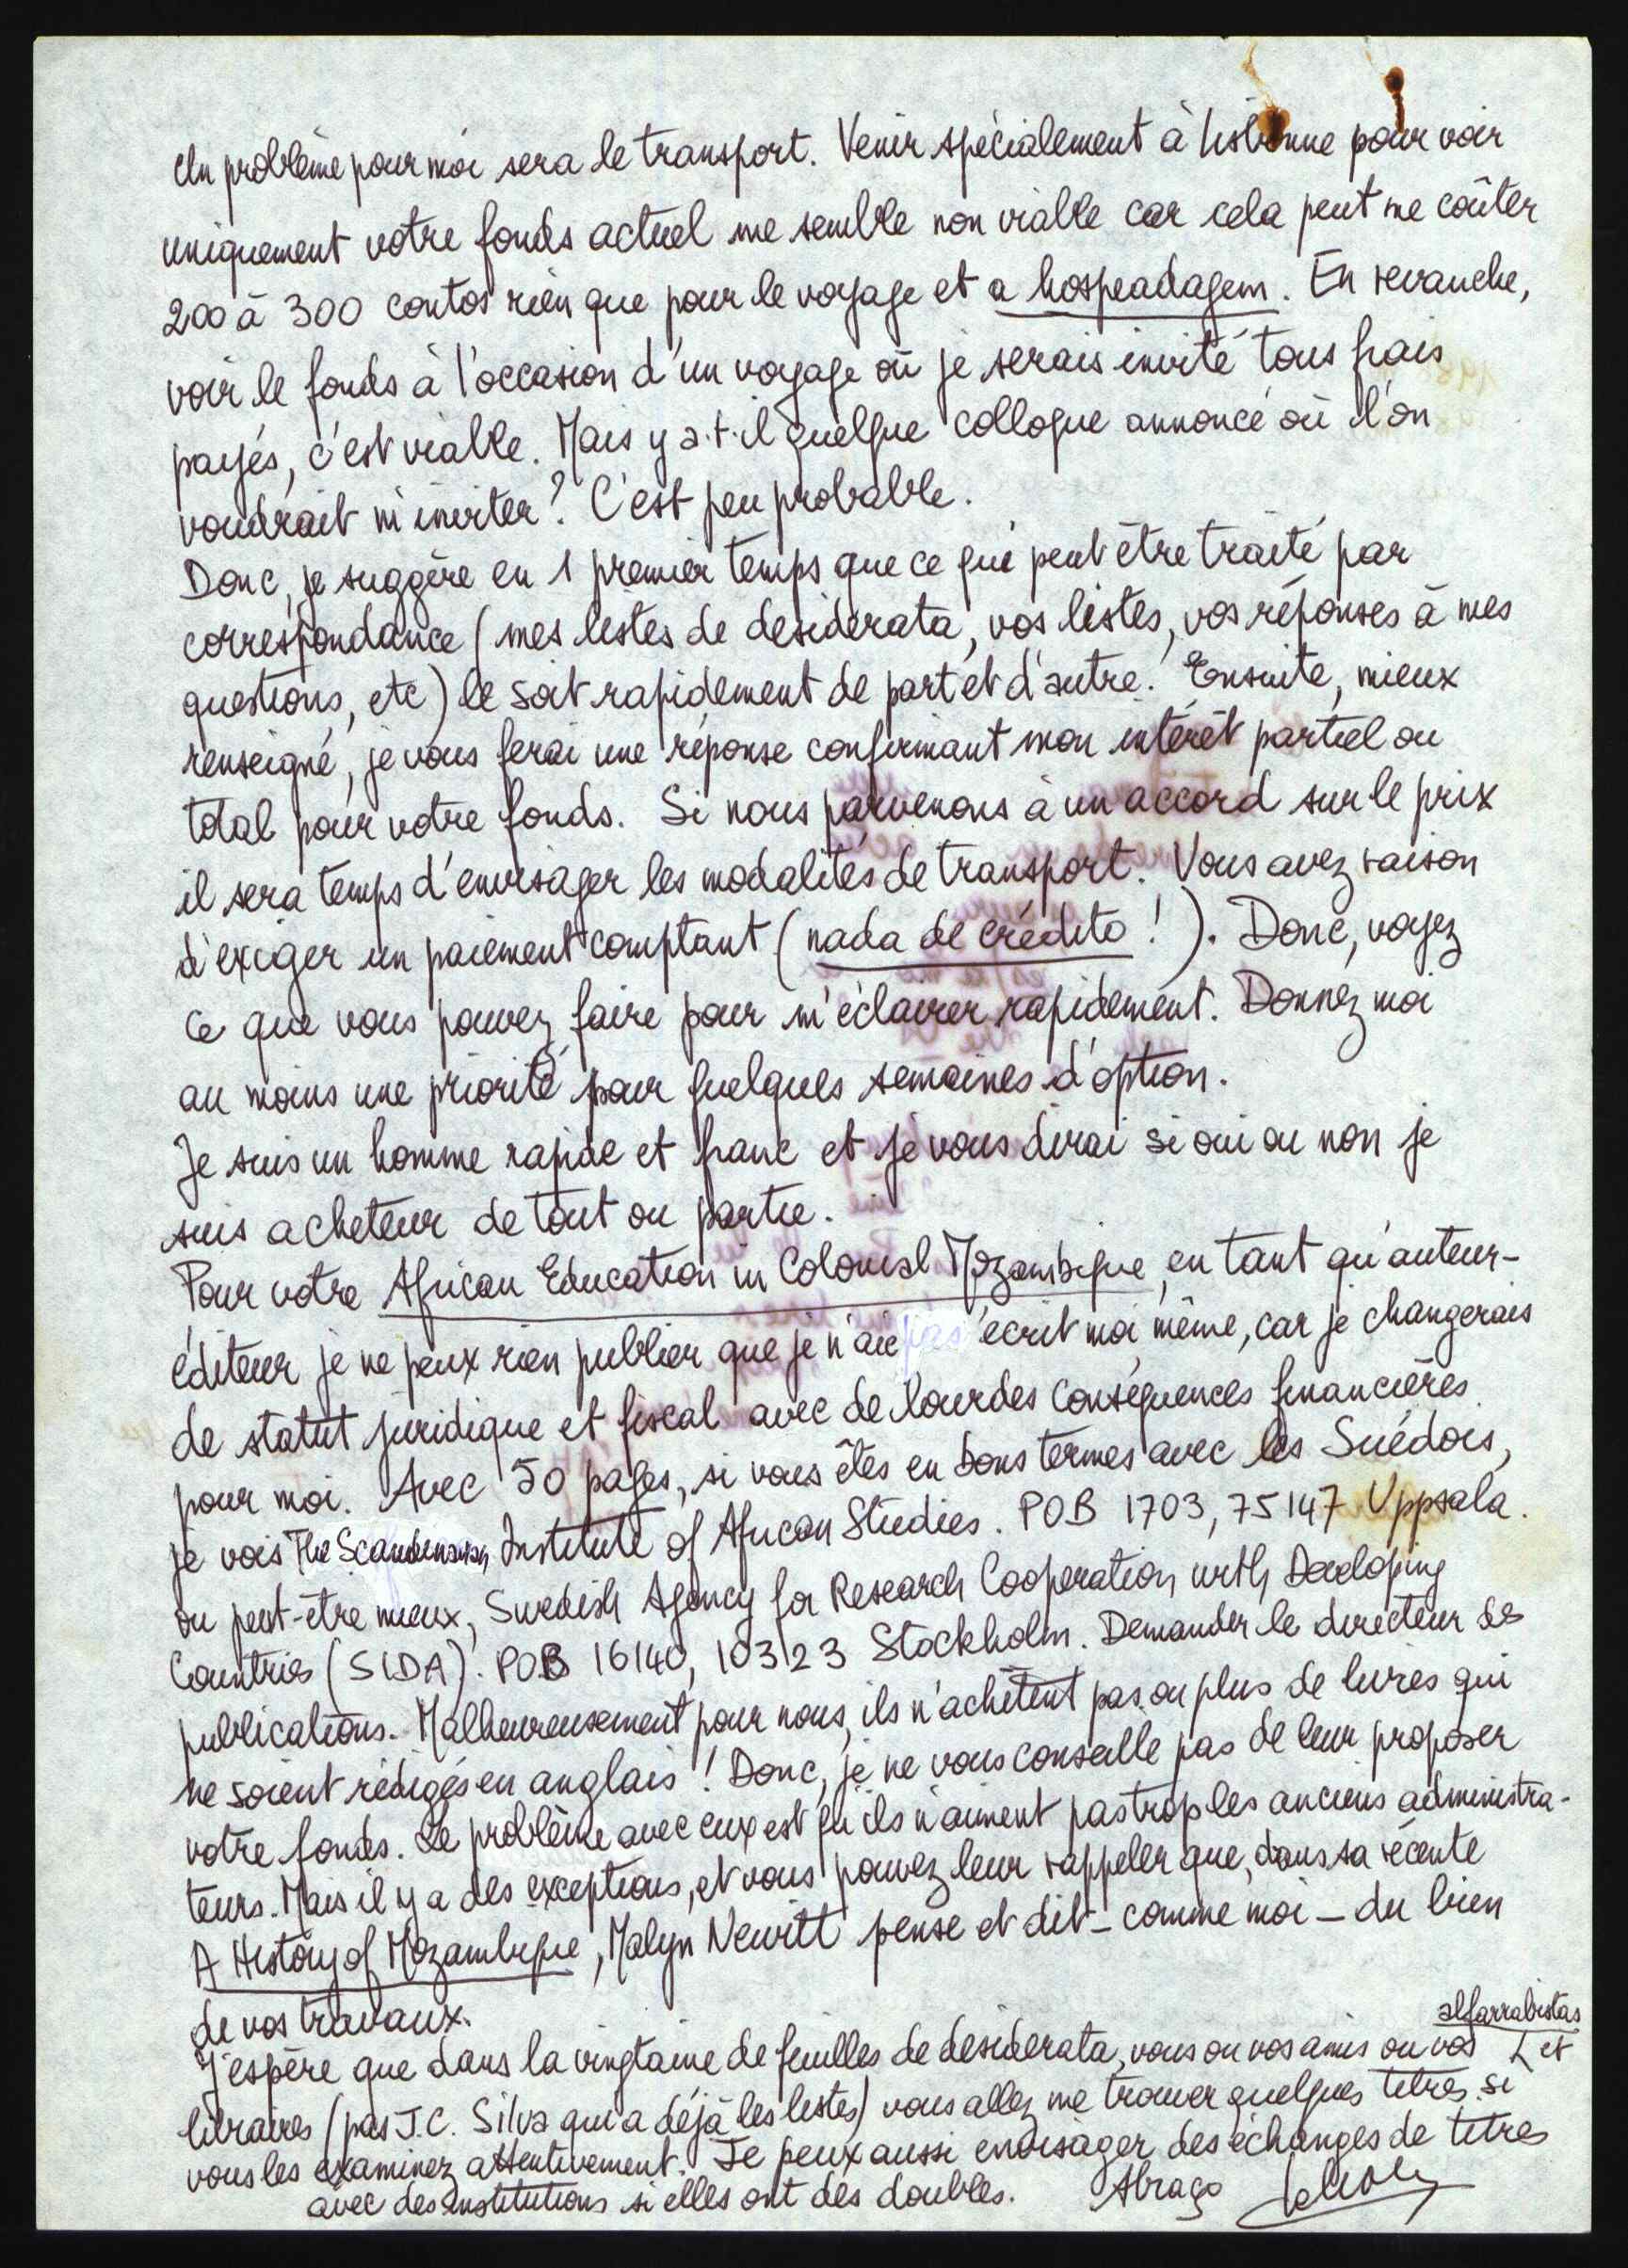 Un problème pour moi sera le transport. Venir spécialement à Lisbonne pour voir
uniquement votre fonds actuel me semble non viable car cela peut me coûter
200 à 300 contos rien que pour le voyage et a hospeadagem. En revanche,
voir le fonds à l'occasion d'un voyage où je serais invité tous frais
payés, c'est viable. Mais y a.t.il quelque colloque annoncé où l'on
voudrait m'inviter? C'est peu probable.
Donc, je suggère en 1 premier temps que ce qui peut être traité par
correspondance (mes listes de desiderata, vos listes, vos réponses à mes
questions, etc) le soit rapidement de part et d'autre. Ensuite, mieux
renseigné, je vous ferai une réponse confirmant mon intérêt partiel ou
total pour votre fonds. Si nous parvenons à un accord sur le prix
il sera temps d'envisager les modalités de transport. Vous avez raison
d'exiger un paiement comptant (nada de crédito!). Donc, voyez
ce que vous pouvez faire pour m'éclairer rapidement. Donnez moi
au moins une priorité pour quelques semaines d'option.
Je suis un homme rapide et franc et je vous dirai si oui ou non je
suis acheteur de tout ou partie.
Pour votre African Education in Colonial Mozambique, en tant qu'auteur-
éditeur je ne peux rien publier que je n'aie pas écrit moi même, car je changerais
de statut juridique et fiscal avec de lourdes conséquences financières
pour moi. Avec 50 pages, si vous êtes en bons termes avec les Suédois,
je vois The Scandinavian Institute of African Studies. POB 1703, 75147 Uppsala.
ou peut-être mieux, Swedish Agency for Research Cooperation with Developing
Countries (SIDA). POB 16140, 10323 Stockholm. Demander le directeur des
publications. Malheureusement pour nous, ils n'achètent pas ou plus de livres qui
ne soient rédigés en anglais! Donc, je ne vous conseille pas de leur proposer
votre fonds. Le problème avec eux est qu'ils n'aiment pas trop les anciens administra-
teurs. Mais il y a des exceptions, et vous pouvez leur rappeler que, dans sa récente
A History of Mozambique, Malyn Newitt pense et dit - comme moi - du bien
de vos travaux.
J'espère que dans la vingtaine de feuilles de desiderata, vous ou vos amis ou vos alfarrabistas et
libraires (pas J.C. Silva qui a déjà les listes) vous allez me trouver quelques titres si
vous les examinez attentivement. Je peux aussi envisager des échanges de titres
avec des institutions si elles ont des doubles. Abraço